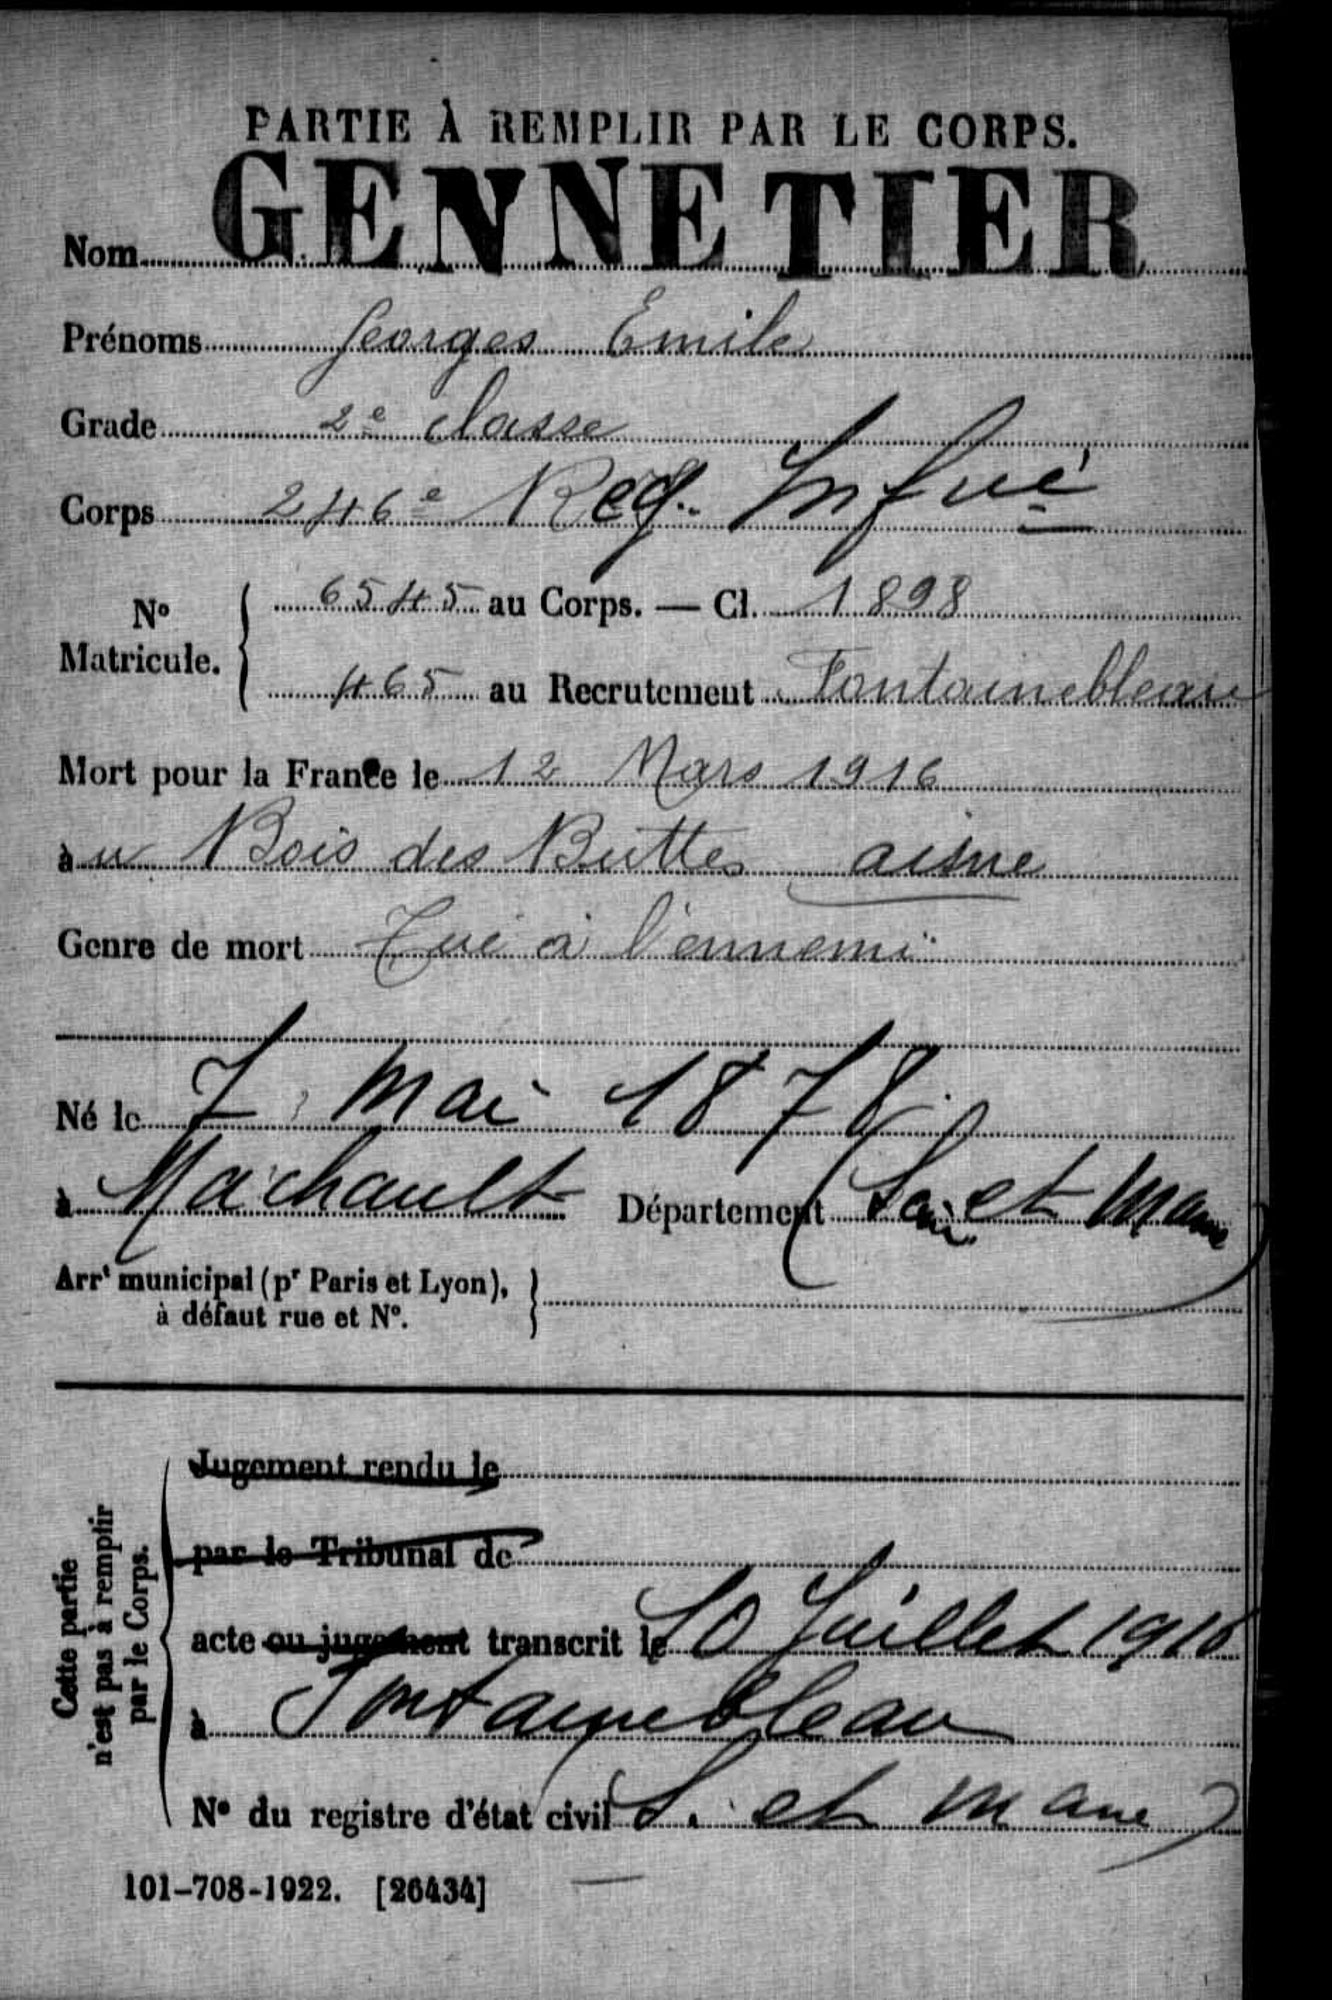 PARTIE À REMPLIR PAR LE CORPS.
Nom GENNETIER
Prénoms Georges Emile
Grade 2e classe
Corps 246e Reg. Infie
No Matricule. { 6545 au Corps. — Cl. 1898
465 au Recrutement Fontainebleau
Mort pour la France le 12 Mars 1916
au Bois des Buttes aisne
Genre de mort Tué à l'ennemi
Né le 7 mai 1878
à Machault Département (Sein et Marne)
Arrt municipal (pr Paris et Lyon), à défaut rue et No. }
Cette partie n'est pas à remplir par le Corps.
Jugement rendu le
par le Tribunal de
acte ou jugement transcrit le 10 Juillet 1916
à Fontainebleau
No du registre d'état civil (S. et Marne)
101-708-1922. [26434]